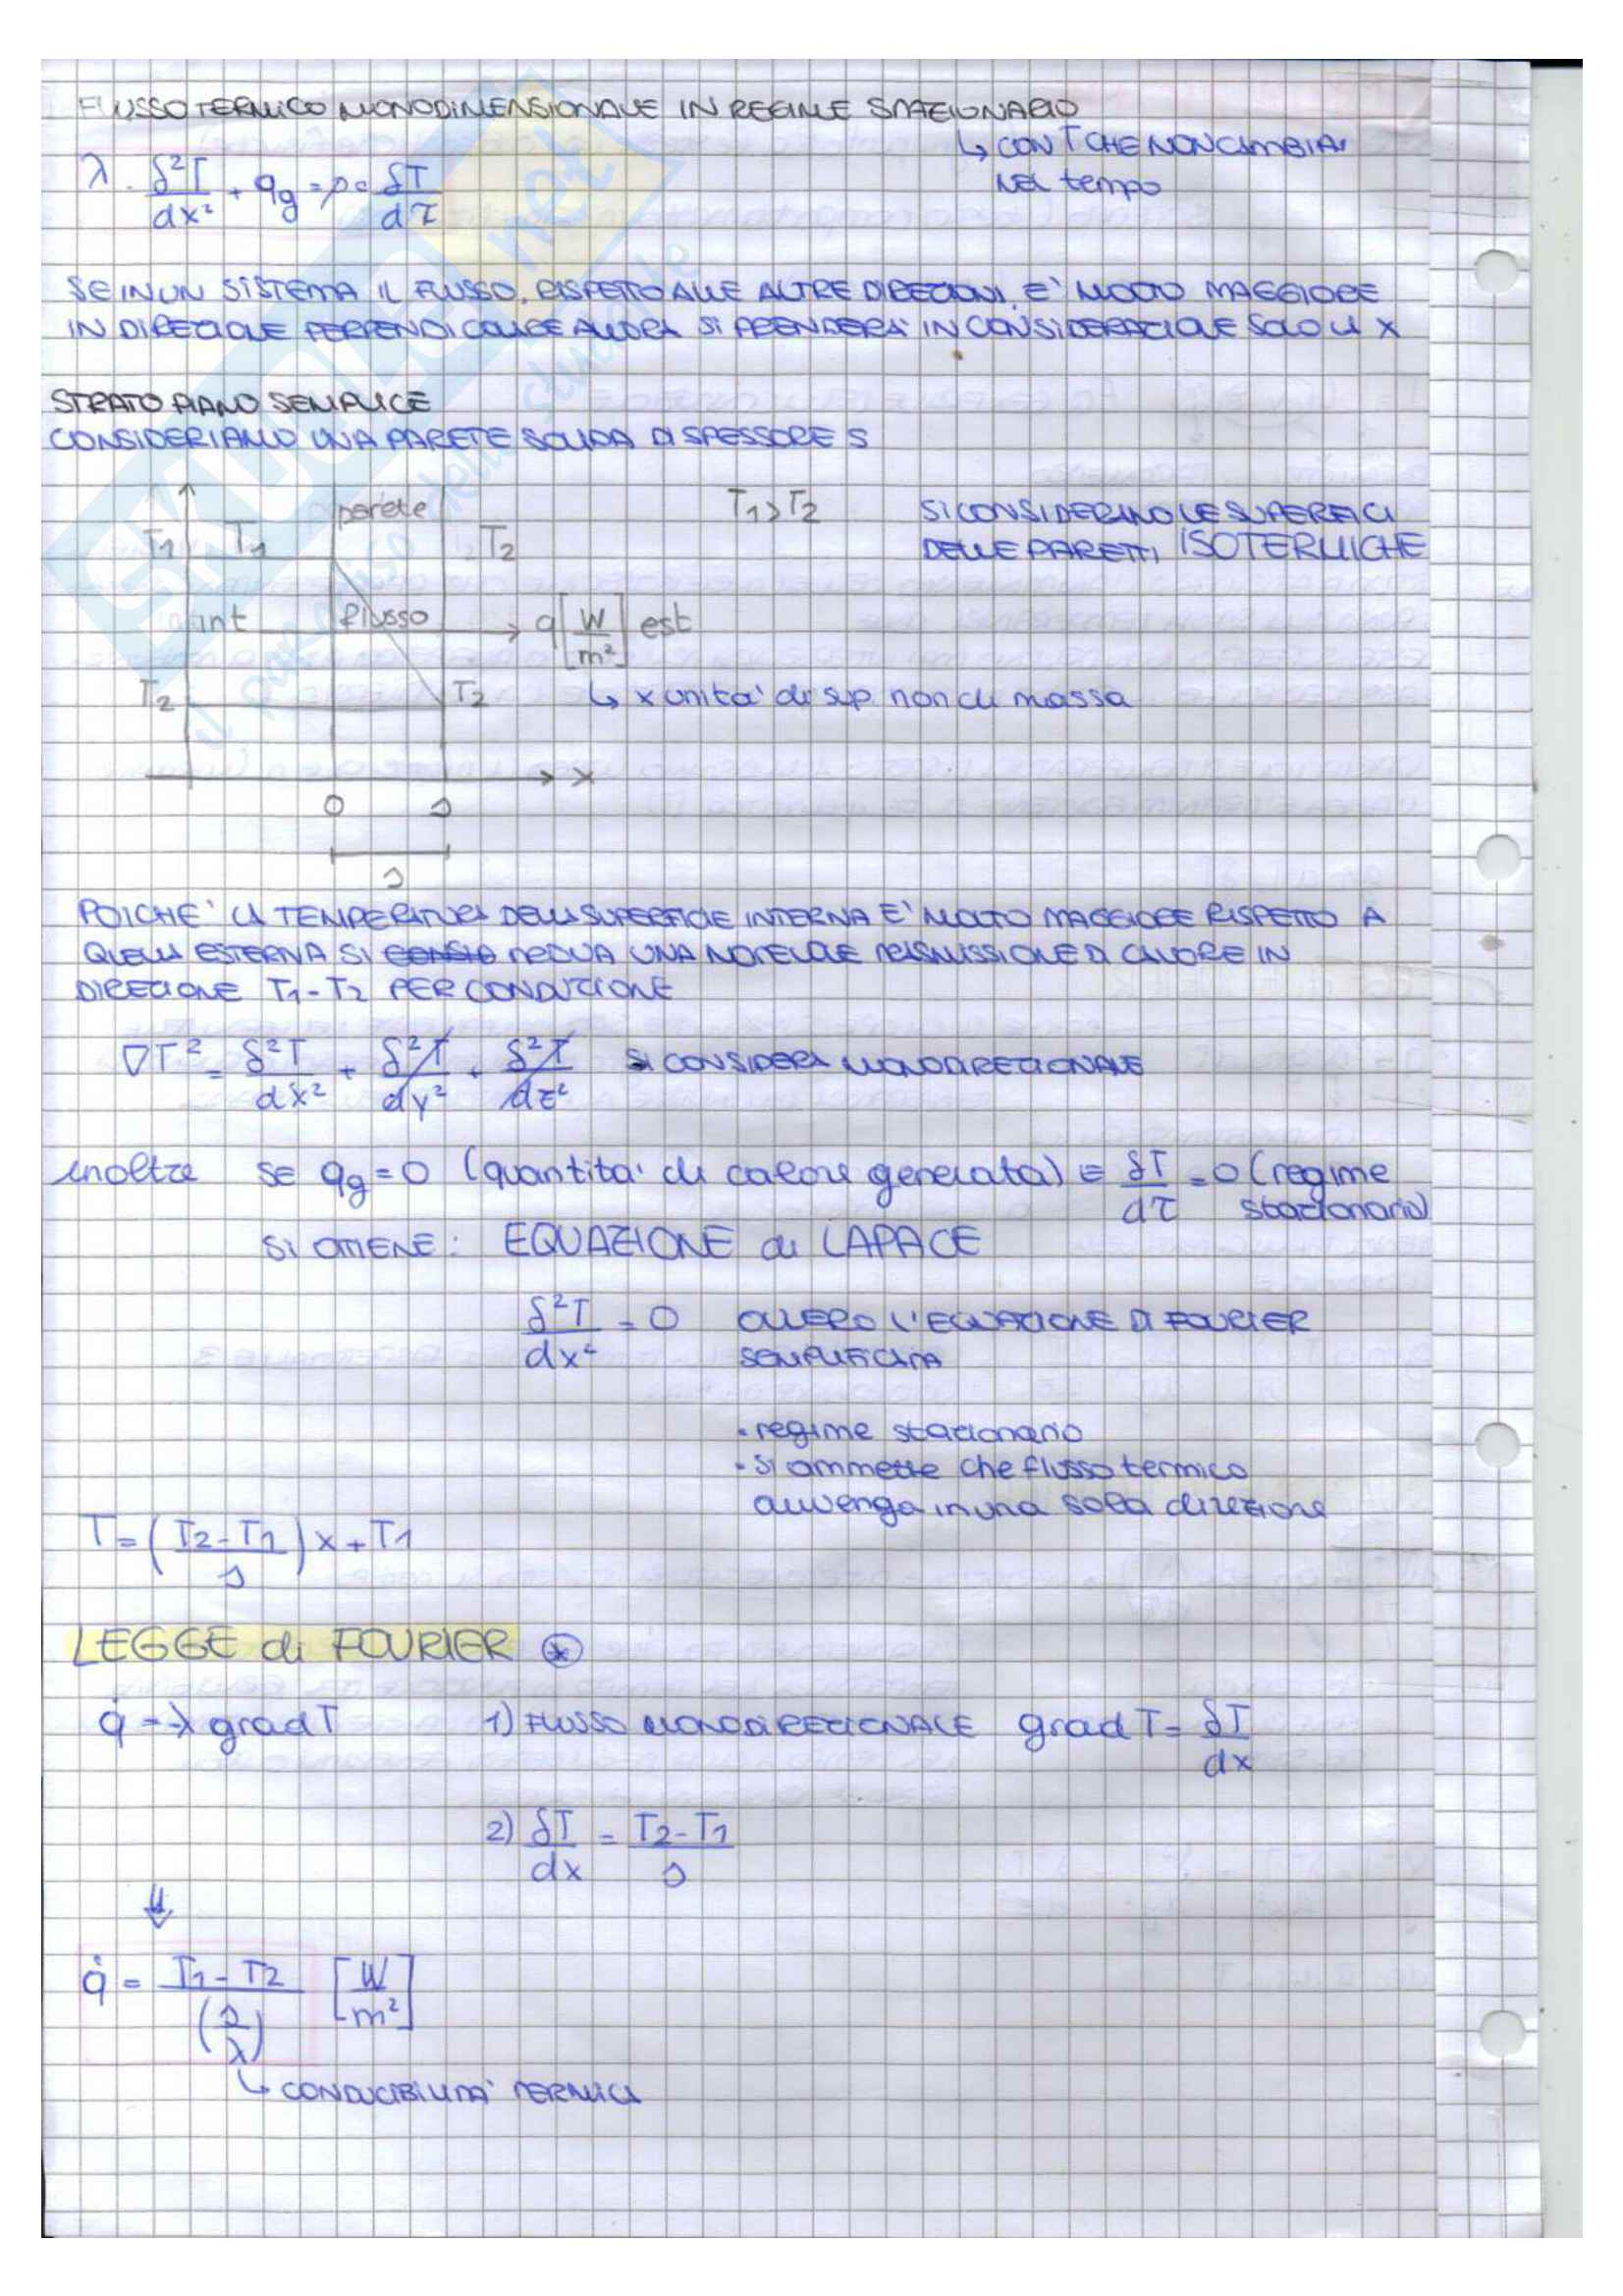 FLUSSO TERMICO MONODIMENSIONALE IN REGIME STAZIONARIO
↳ CON T CHE NON CAMBIA
NEL tempo
λ · δ²T/dx² + qg = ρc δT/dτ
SE IN UN SISTEMA IL FLUSSO, RISPETTO ALLE ALTRE DIREZIONI, E' MOLTO MAGGIORE
IN DIREZIONE PERPENDICOLARE ALLORA SI PRENDERA' IN CONSIDERAZIONE SOLO LA X
STRATO PIANO SEMPLICE
CONSIDERIAMO UNA PARETE SOLIDA DI SPESSORE S
parete
T1>T2
SI CONSIDERINO LE SUPERFICI
DELLE PARETI ISOTERMICHE
T1 T1 T2
int flusso q [W/m²] est
T2 T2
↳ x unita' di sup. non di massa
x
0 s
s
POICHE' LA TEMPERATURA DELLA SUPERFICIE INTERNA E' MOLTO MAGGIORE RISPETTO A
QUELLA ESTERNA SI TROVA UNA NOTEVOLE TRASMISSIONE DI CALORE IN
DIREZIONE T1-T2 PER CONDUZIONE
∇T² = δ²T/dx² + δ²T/dy² + δ²T/dz² SI CONSIDERA MONODIREZIONALE
inoltre SE qg=0 (quantita' di calore generata) E δT/dτ = 0 (regime
stazionario)
SI OTTIENE: EQUAZIONE di LAPACE
δ²T/dx² = 0 OVVERO L'EQUAZIONE DI FOURIER
SEMPLIFICATA
• regime stazionario
• Si ammette che flusso termico
avvenga in una sola direzione
T = (T2-T1/s) x + T1
LEGGE di FOURIER *
q̇ = -λ grad T 1) FLUSSO MONODIREZIONALE grad T = δT/dx
2) δT/dx = T2-T1/s
⇓
q̇ = T1-T2/(s/λ) [W/m²]
↳ CONDUCIBILITA' TERMICA
SKUOLA.net
il paradiso dello studente